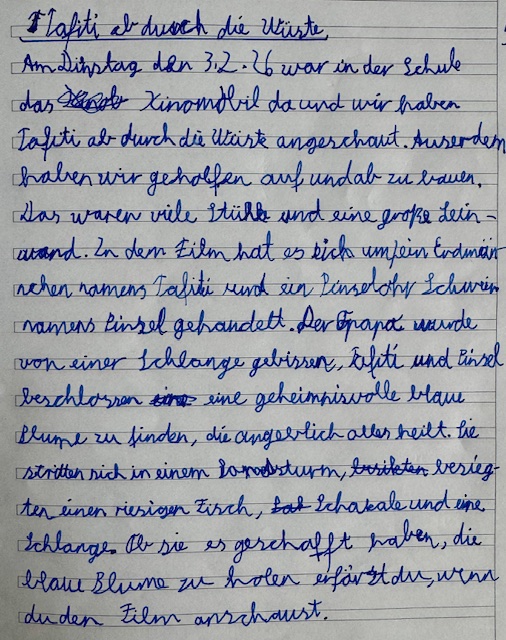 Tafiti ab durch die Wüste
Am Dinstag den 3.2.26 war in der Schule
das Kinomobil da und wir haben
Tafiti ab durch die Wüste angeschaut. Auserdem
haben wir geholfen auf und ab zu bauen.
Das waren viele Stühle und eine große Lein-
wand. In dem Film hat es sich um ein Erdmän-
nchen namens Tafiti und ein Pinselohr Schwein
namens Pinsel gehandelt. Der Opapa wurde
von einer Schlange gebissen, Tafiti und Pinsel
beschlossen eine geheimnisvolle blaue
Blume zu finden, die angeblich alles heilt. Sie
stritten sich in einem Sandsturm, besieg-
ten einen riesigen Fisch, Schakale und eine
Schlange. Ob sie es geschafft haben, die
blaue Blume zu holen erfärst du, wenn
du den Film anschaust.